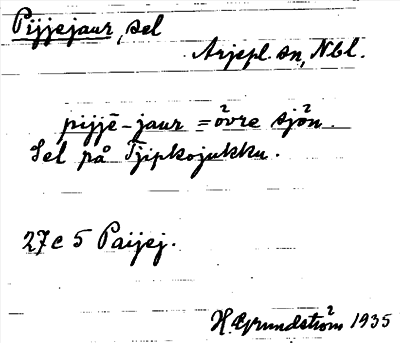 Pijjejaur, sel
Arjepl. sn, Nbl.
pijjē-jaur = övre sjön.
Sel på Tjipkojukku.
27 c 5 Paijej.
H. Grundström 1935